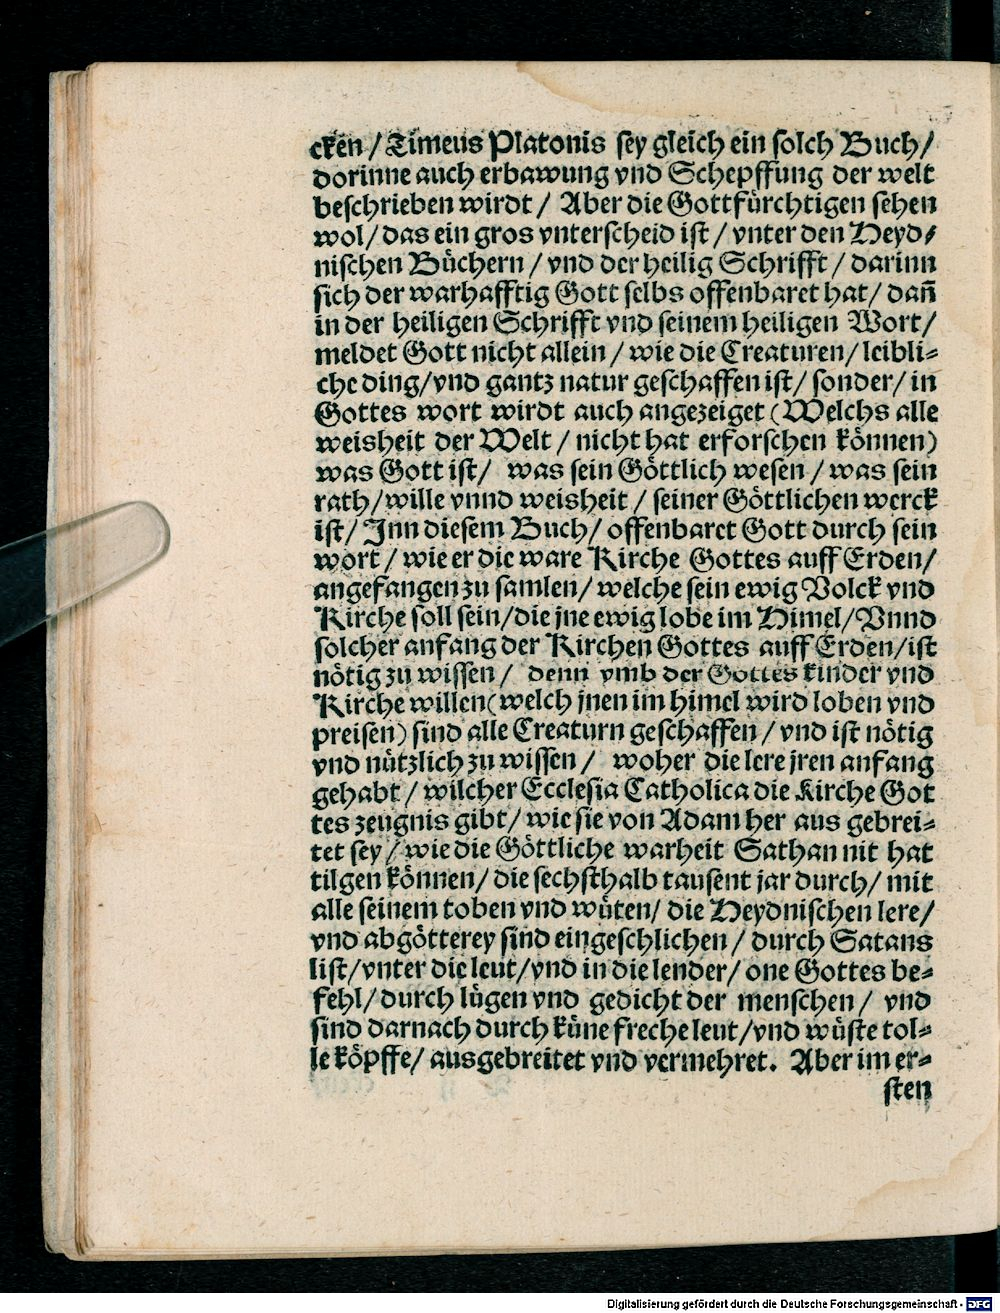 cken / Timeus Platonis sey gleich ein solch Buch /
dorinne auch erbawung vnd Schepffung der welt
beschrieben wirdt / Aber die Gottfürchtigen sehen
wol / das ein gros vnterscheid ist / vnter den Heyd⸗
nischen Büchern / vnd der heilig Schrifft / darinn
sich der warhafftig Gott selbs offenbaret hat / dañ
in der heiligen Schrifft vnd seinem heiligen Wort /
meldet Gott nicht allein / wie die Creaturen / leibli⸗
che ding / vnd gantz natur geschaffen ist / sonder / in
Gottes wort wirdt auch angezeiget (Welchs alle
weisheit der Welt / nicht hat erforschen können)
was Gott ist / was sein Göttlich wesen / was sein
rath / wille vnnd weisheit / seiner Göttlichen werck
ist / Inn diesem Buch / offenbaret Gott durch sein
wort / wie er die ware Kirche Gottes auff Erden /
angefangen zu samlen / welche sein ewig Volck vnd
Kirche soll sein / die jne ewig lobe im Himel / Vnnd
solcher anfang der Kirchen Gottes auff Erden / ist
nötig zu wissen / denn vmb der Gottes kinder vnd
Kirche willen (welch jnen im himel wird loben vnd
preisen) sind alle Creaturn geschaffen / vnd ist nötig
vnd nützlich zu wissen / woher die lere jren anfang
gehabt / wilcher Ecclesia Catholica die Kirche Got
tes zeugnis gibt / wie sie von Adam her aus gebrei⸗
tet sey / wie die Göttliche warheit Sathan nit hat
tilgen können / die sechsthalb tausent jar durch / mit
alle seinem toben vnd wüten / die Heydnischen lere /
vnd abgötterey sind eingeschlichen / durch Satans
list / vnter die leut / vnd in die lender / one Gottes be⸗
fehl / durch lügen vnd gedicht der menschen / vnd
sind darnach durch küne freche leut / vnd wüste tol⸗
le köpffe / ausgebreitet vnd vermehret. Aber im er⸗
sten
Digitalisierung gefördert durch die Deutsche Forschungsgemeinschaft - DFG